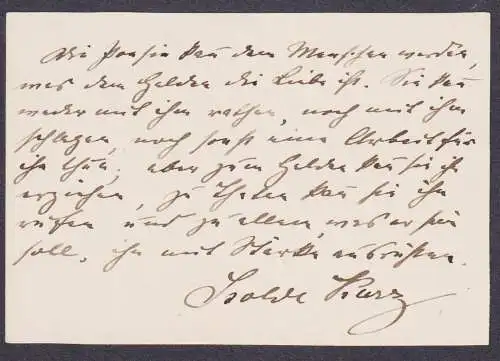 Die Poesie kan dem Menschen werden,
was dem Helden die Liebe ist. Sie kan
weder mit ihm rathen, noch mit ihm
schlagen, noch sonst eine Arbeit für
ihn thun; aber zum Helden kan sie ihn
erziehen, zu Thaten kan sie ihn
rufen und zu allem, was er sein
soll, ihn mit Stärke ausrüsten.
Isolde Kurz